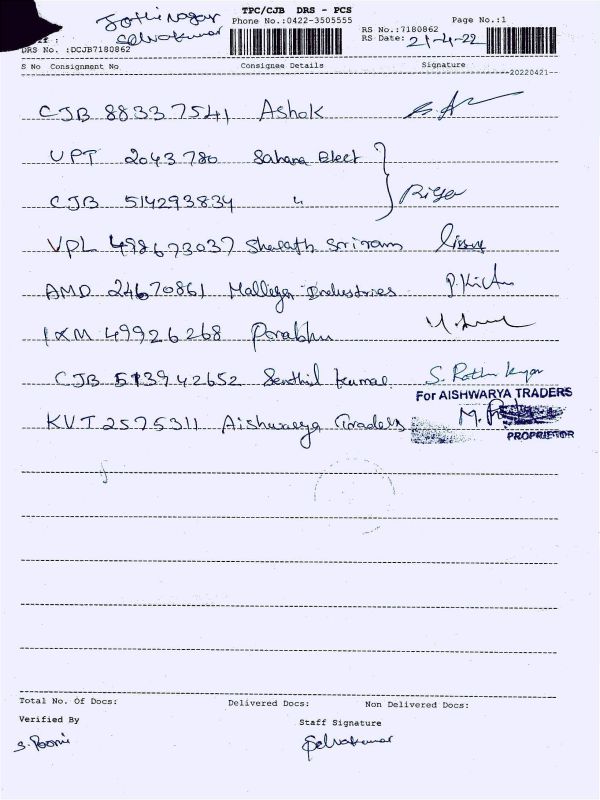 TPC/CJB DRS - PCS
Jothi nagar
Selvakumar
Phone No.:0422-3505555
Page No.:1
RS No.:7180862
RS Date: 21-4-22
DRS No. :DCJB7180862
S No Consignment No Consignee Details Signature
20220421
CJB 88337541 Ashok
UPT 2043780 Sahana Elect
CJB 514293834 "
VPL 498673037 Sharath Sriram
AMD 24670861 Mallega Industries P.Kittu
IXM 49926268 Prabhu
CJB 513942652 Senthil kumar S. Rathi
For AISHWARYA TRADERS
KVT 2575311 Aishwarya Traders
PROPRIETOR
Total No. Of Docs: Delivered Docs: Non Delivered Docs:
Verified By Staff Signature
S. Poorni Selvakumar